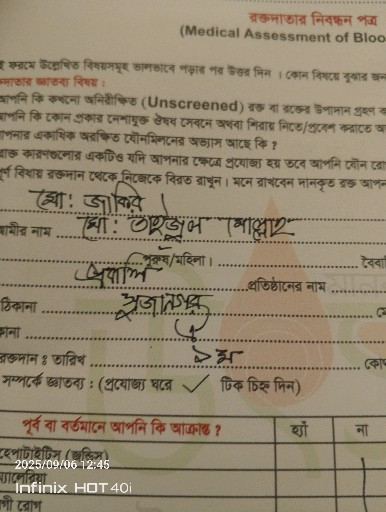 রক্তদাতার নিবন্ধন পত্র
(Medical Assessment of Bloo
ফরমে উল্লেখিত বিষয়সমূহ ভালভাবে পড়ার পর উত্তর দিন । কোন বিষয়ে বুঝার জন
দাতার জ্ঞাতব্য বিষয় :
আপনি কি কখনো অনিরীক্ষিত (Unscreened) রক্ত বা রক্তের উপাদান গ্রহণ ক
আপনি কি কোন প্রকার নেশাযুক্ত ঔষধ সেবনে অথবা শিরায় নিতে/প্রবেশ করাতে অ
আপনার একাধিক অরক্ষিত যৌনমিলনের অভ্যাস আছে কি ?
উক্ত কারণগুলোর একটিও যদি আপনার ক্ষেত্রে প্রযোজ্য হয় তবে আপনি যৌন রো
পূর্ণ বিধায় রক্তদান থেকে নিজেকে বিরত রাখুন। মনে রাখবেন দানকৃত রক্ত আপন
মো: জাকির
স্বামীর নাম মো: তাইজুল মোল্লাহ
পুরুষ/মহিলা । বৈবা
প্রবাসি প্রতিষ্ঠানের নাম
ঠিকানা সুজানগর মো
কানা
রক্তদান ঃ তারিখ ১ম কো
সম্পর্কে জ্ঞাতব্য : (প্রযোজ্য ঘরে ✓ টিক চিহ্ন দিন)
পূর্ব বা বর্তমানে আপনি কি আক্রান্ত ? হ্যাঁ না
হেপাটাইটিস (জন্ডিস)
ম্যালেরিয়া
রোগ
2025/09/06 12:45
Infinix HOT 40i